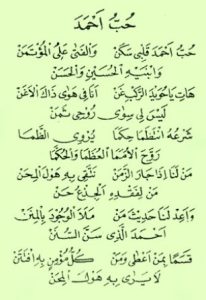 حُبُّ اَحْمَدَ
حُبُّ اَحْمَدَ قَلْبِيْ سَكَنْ وَالْفَتَى عَلِيُّ الْمُؤْتَمَنْ
وَابْنَيْهِ الْحُسَيْنِ وَالْحَسَنْ
هَاتِ يَا حُوَيْدِ الرَّكَائِبْ اَنَا فِى هَوٰى ذَاكَ الْاَغَنْ
لَيْسَ لِى سِوٰى رُوْحِى ثَمَنْ
شَرْعُهُ انْتَظَمَا حِكَمَا يُرْوِى الظَّمَا
رَوَّحَ الْاُمَمَا الْعُظَمَا وَالْحُكَمَا
مَنْ لَنَا اِذَا جَارَ الزَّمَنْ نَتَّقِى بِهِ هَوْلَ الْمِحَنْ
مَنْ لِفَقْدِهِ الْجِذْعُ حَنْ
وَاعِدْ لَنَا حَدِيْثَ مَنْ مَلَأَ الْوُجُوْدَ بِالْمِنَنْ
اَحْمَدَ الَّذِى سَنَّ السُّنَنْ
قَسَمًا بِمَنْ اَعْطَى وَمَنْ كُلُّ مُؤْمِنٍ بِهِ افْتَتَنْ
لَا يَرَى بِهِ هَوْلَ الْمِحَنْ